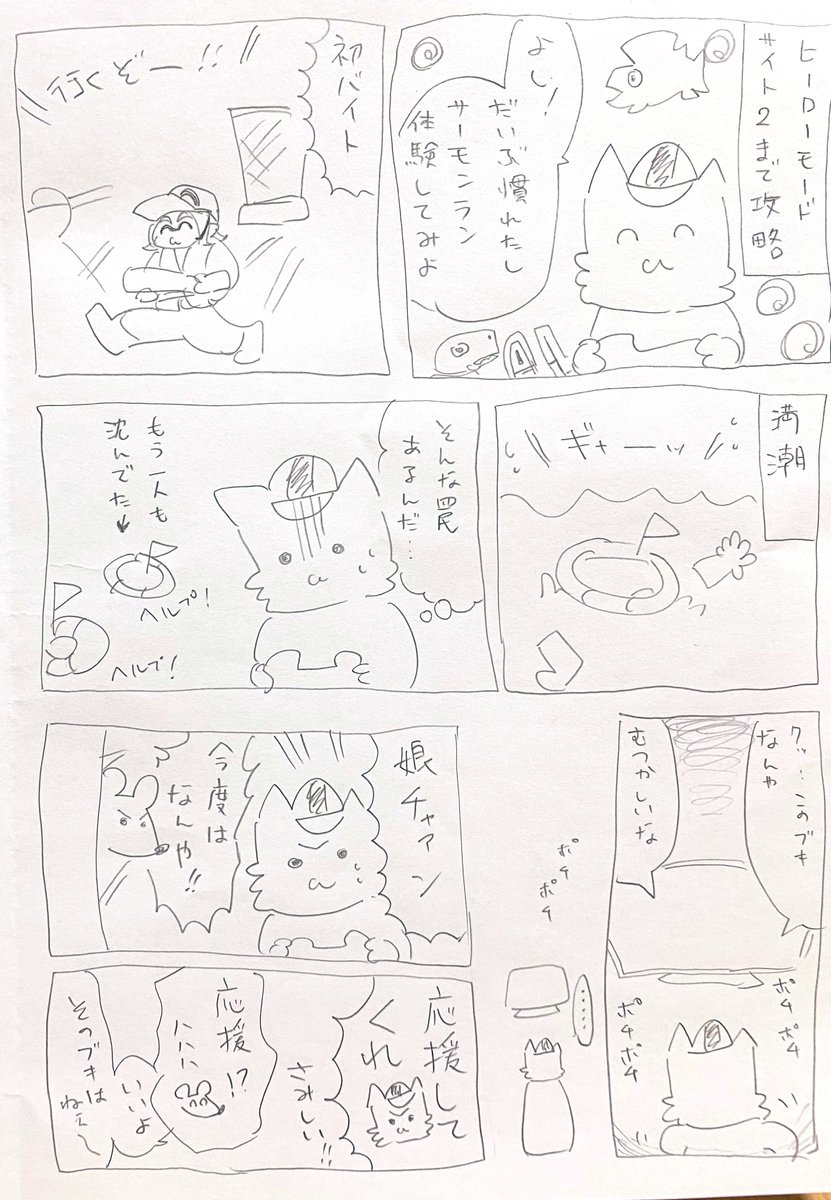 ヒーローモード
サイト2まで攻略
よし!
だいぶ慣れたし
サーモンラン
体験してみよ
初バイト
行くぞー!!
満潮
ギャーーッ
そんな罠
あるんだ…
もう一人も
沈んでた↓
ヘルプ!
ヘルプ!
クッ…このブキ
なんや
むつかしいな
ポチポチ
ポチポチ
ポチ
ポチ
………
娘チャァン
今度は
なんや!!
応援して
くれ
さみしい!!
応援!?
ハハハ
いいよ
そのブキは
ねぇ〜